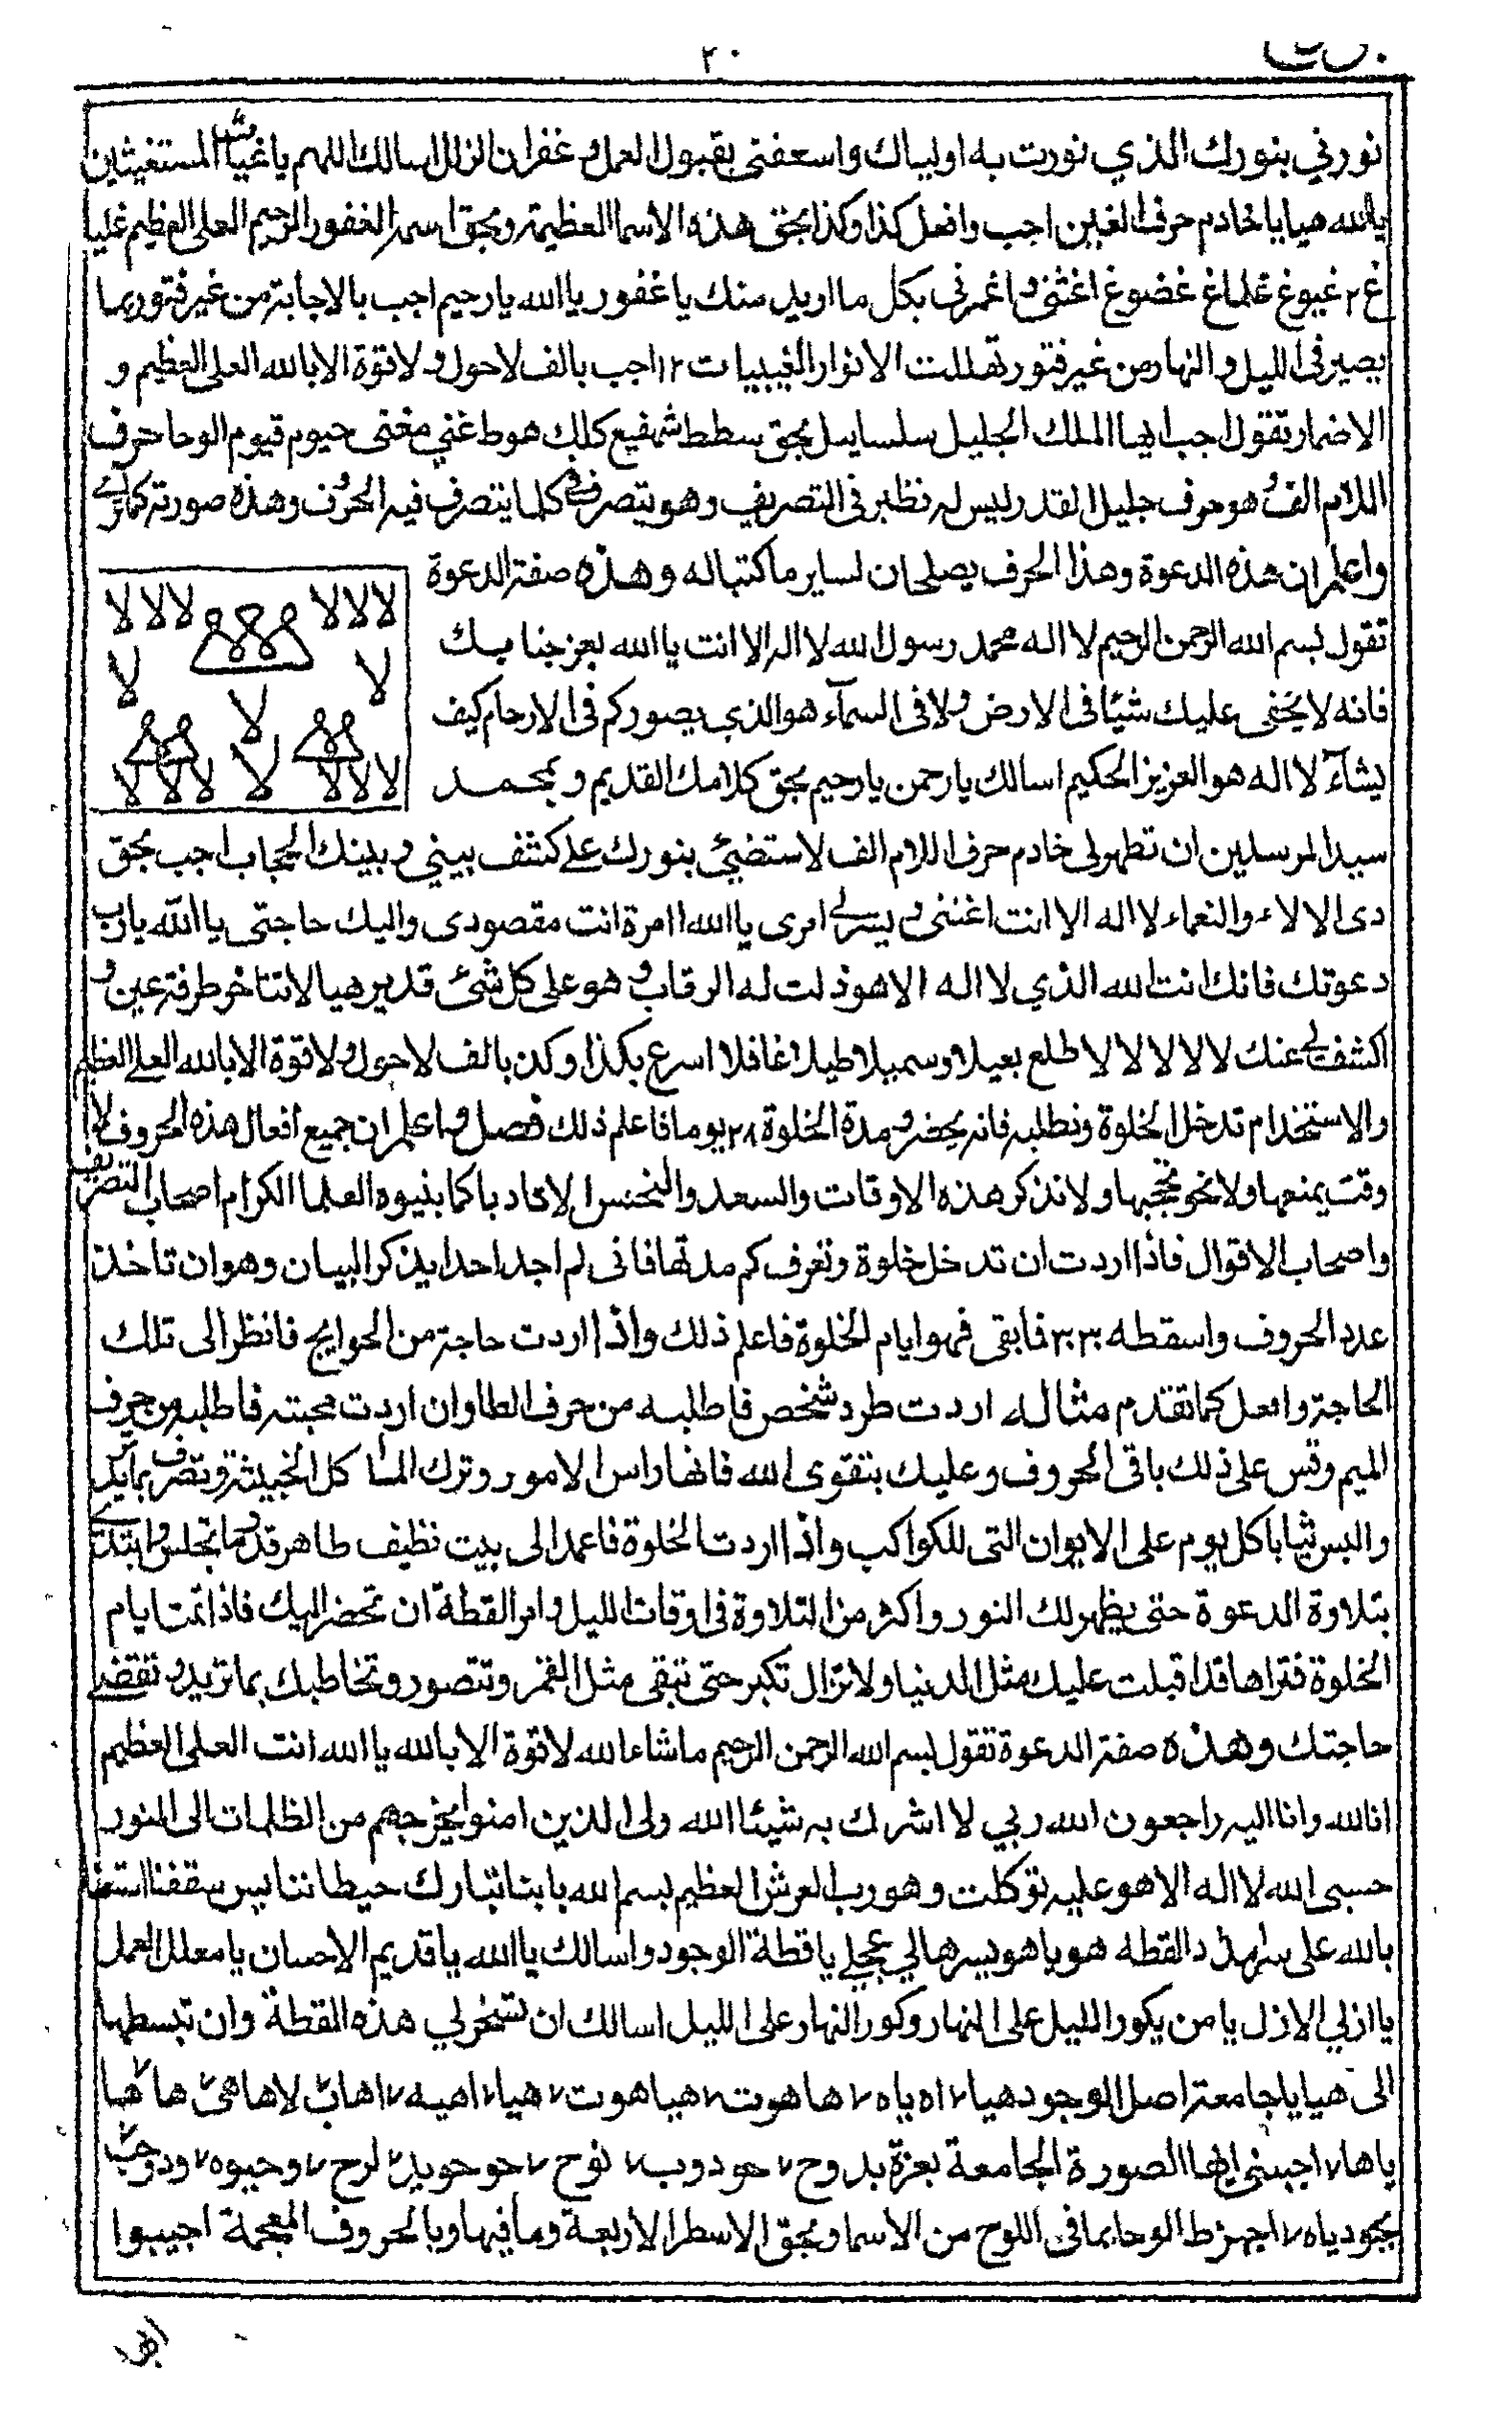 ٢٠
نورني بنورك الذي نورت به اوليباك واسعفنى بقبول العمل و غفران الزلل اسالك اللهم ياغياث المستغيثين
يالله هيا ياخادم حرف الغين اجب وافعل كذا وكذا بحق هذه الاسما العظيمة وبحق اسمه الغفور الرحيم العلى العظيم غليا
غ٢ غيوغ غلماغ غضوغ اغثنى و اغمرنى بكل ما اريد منك يا غفور يا الله يا رحيم اجب بالاجابة من غير فتور بها
يصير فى الليل والنهار من غير فتور تهللت الانوار الغيبيات ١٢ اجب بالف لاحول ولا قوة الا بالله العلى العظيم و
الاضمار تقول اجب ايها الملك الجليل سلساييل بحق سطط شهفيع كلك هوط غني مغنى حيوم قيوم الوحا حرف
اللام الف و هو حرف جليل القدر ليس له نظير فى التصريف وهو يتصرف فى كلما يتصرف فيه الحروف وهذه صورته كما ترى
واعلم ان هذه الدعوة وهذا الحرف يصلحان لساير ما كتبا له وهذه صفة الدعوة
لا لا لا لا لا لا
تقول بسم الله الرحمن الرحيم لا اله محمد رسول الله لا اله الا انت يا الله بعز جنابك
لا لا
فانه لا يخفى عليك شيئا فى الارض ولا فى السمآء هو الذي يصوركم فى الارحام كيف
لا
يشآء لا اله هو العزيز الحكيم اسالك يا رحمن يا رحيم بحق كلامك القديم وبمحمد
لا لا لا لا لا لا لا
سيد المرسلين ان تظهر لى خادم حرف اللام الف لا ستضيئ بنورك على كشف بيني وبينك الحجاب اجب بحق
ذى الالاء والنعماء لا اله الا انت اغثنى و يسر لى امرى يا الله انت مقصودى واليك حاجتى يا الله يارب
دعوتك فانك انت الله الذي لا اله الا هو ذلت له الرقاب و هو على كل شئ قدير هيا لا تتاخر طرفة عين و
اكشف لى عنك لا لا لا لا لا لا طلع بعيلا وسمبيلا طيلا غافلا اسرع بكذا وكذا بالف لاحول ولا قوة الا بالله العلى العظيم
والاستخدام تدخل الخلوة وتطلبه فانه يحضر و مدة الخلوة ٢٨ يوما فاعلم ذلك فصل واعلم ان جميع افعال هذه الحروف لا
وقت يمنعها ولا نحو يحجبها ولا نذكر هذه الاوقات والسعد والنحس الا تادبا كما بنيوه العلما الكرام اصحاب التصريف
واصحاب الاقوال فاذا اردت ان تدخل خلوة وتعرف كم مدتها فانى لم اجد احدا يذكر البيان وهو ان تاخذ
عدد الحروف واسقطه ٣٠ ٣٠ فما بقى فهو ايام الخلوة فاعلم ذلك واذا اردت حاجة من الحوايج فانظر الى تلك
الحاجة وافعل كما تقدم مثاله اردت طرد شخص فاطلبه من حرف الطا وان اردت محبته فاطلبه من حرف
الميم وقس على ذلك باقى الحروف وعليك بتقوى الله فانها راس الامور وترك المأكل الخبيثة وتصرف بما يذكر
والبس ثيابا كل يوم على الايوان التى للكواكب واذا اردت الخلوة فاعمد الى بيت نظيف طاهر وابتدئ
بتلاوة الدعوة حتى يظهر لك النور واكثر من التلاوة فى اوقات الليل وامر القطة ان تحضر اليك فاذا تمت ايام
الخلوة فتراها قد اقبلت عليك مثل الدنيا ولا تزال تكبر حتى تبقى مثل القمر وتتصور وتخاطبك بما تريد وتقضى
حاجتك وهذه صفة الدعوة تقول بسم الله الرحمن الرحيم ماشاء الله لا قوة الا بالله يا الله انت العلى العظيم
انا لله وانا اليه راجعون الله ربي لا اشرك به شيئا الله ولى الذين امنوا يخرجهم من الظلمات الى النور
حسبى الله لا اله الا هو عليه توكلت وهو رب العرش العظيم بسم الله بابنا تبارك حيطاننا يس سقفنا استعنا
بالله على القطه هو يا هو يسرها لي عجلى يا قطة الوجود واسالك يا الله يا قديم الاحسان يا معلل العمل
يا ازلي الازل يا من يكور الليل على النهار وكور النهار على الليل اسالك ان تسخر لي هذه القطة وان تبسطها
الى هيا يا جامعة اصل الوجود هيا٧ اه ياه ٧ هاهوت٧ هياهوت٧ هيا٧ اهيه٧ اهاب٧ لاهاهى٧ ها ها٧
ياها٧ اجيبنى ايها الصورة الجامعة بعزة بدوح ٧ حودوب٧ نوح ٧ حوحويد٧ لرح ٧ وحيوه٧ ودوحب٧
بجودياه ٧ اجهزط الوحا بما فى اللوح من الاسما وبحق الاسطر الاربعة وما فيها وبالحروف المعجمة اجيبوا
ايها